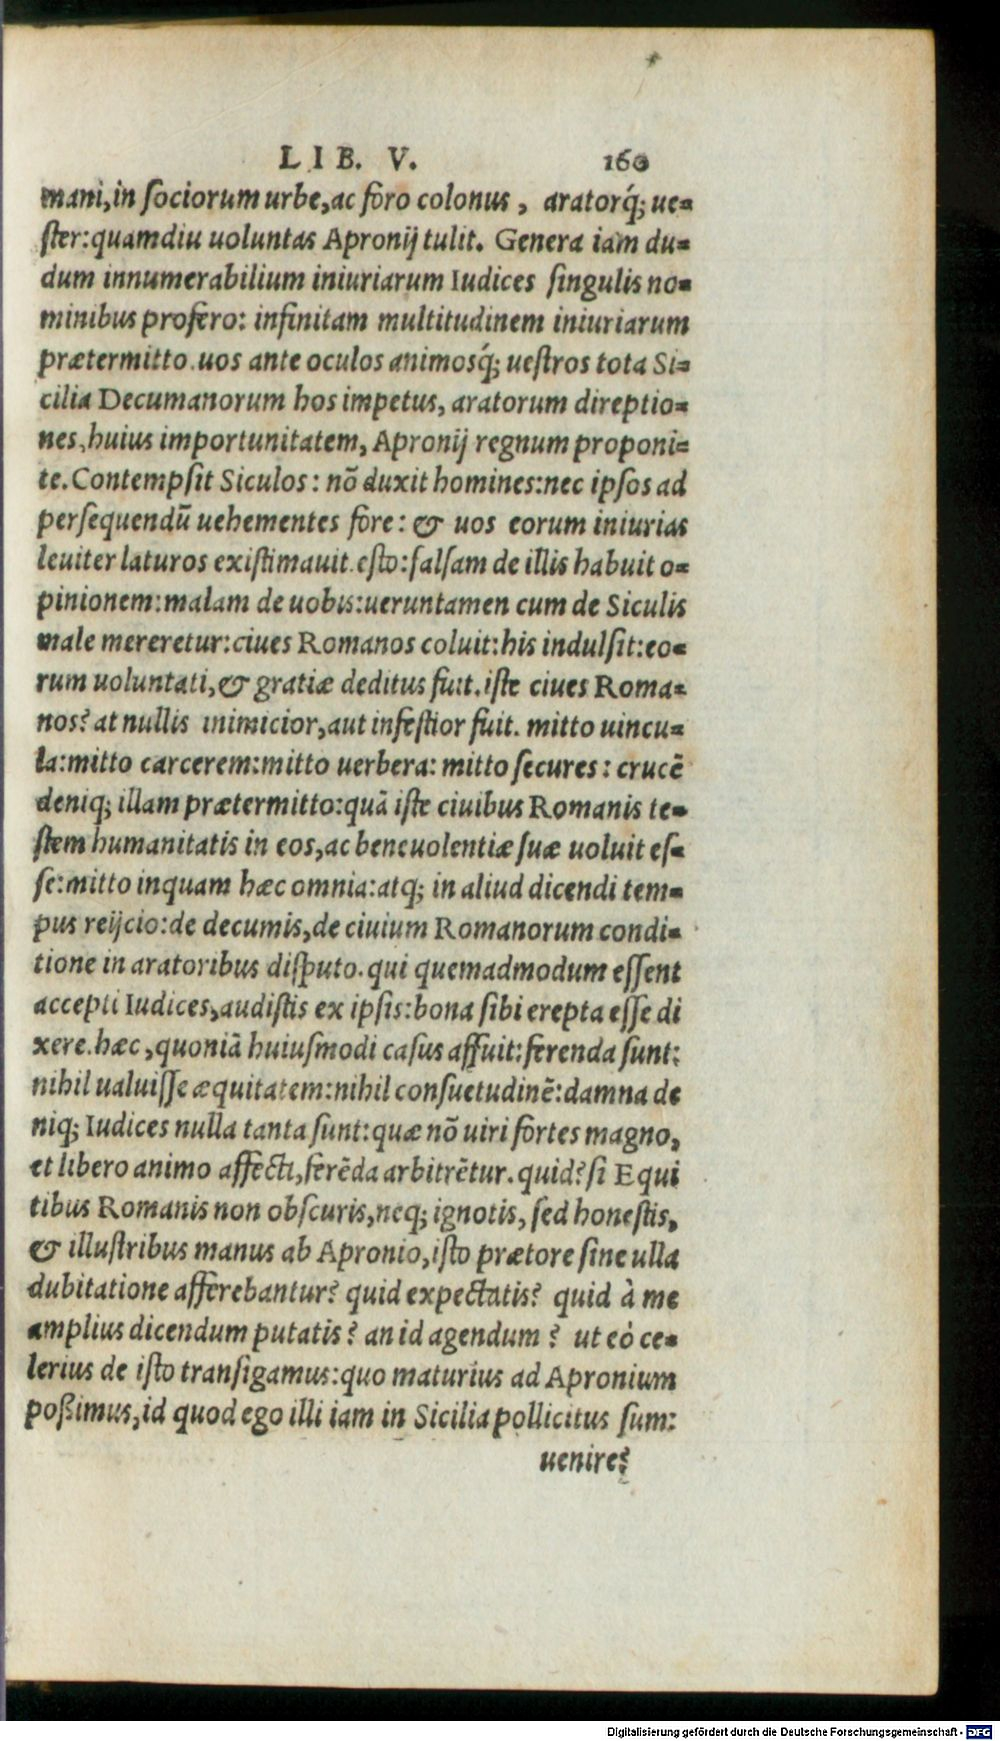 LIB. V. 160
mani, in ſociorum urbe, ac foro colonus, aratorq́; ue-
ſter: quamdiu uoluntas Apronij tulit. Genera iam du-
dum innumerabilium iniuriarum Iudices ſingulis no-
minibus profero: infinitam multitudinem iniuriarum
prætermitto. uos ante oculos animosq́; ueſtros tota Si-
cilia Decumanorum hos impetus, aratorum direptio-
nes, huius importunitatem, Apronij regnum proponi-
te. Contempſit Siculos: nō duxit homines: nec ipſos ad
perſequendū uehementes fore: & uos eorum iniurias
leuiter laturos exiſtimauit. eſto: falſam de illis habuit o-
pinionem: malam de uobis: ueruntamen cum de Siculis
male mereretur: ciues Romanos coluit: his indulſit: eo-
rum uoluntati, & gratiæ deditus fuit. iſte ciues Roma-
nos? at nullis inimicior, aut infeſtior fuit. mitto uincu-
la: mitto carcerem: mitto uerbera: mitto ſecures: crucē
deniq; illam prætermitto: quā iſte ciuibus Romanis te-
ſtem humanitatis in eos, ac beneuolentiæ ſuæ uoluit eſ-
ſe: mitto inquam hæc omnia: atq; in aliud dicendi tem-
pus reijcio: de decumis, de ciuium Romanorum condi-
tione in aratoribus diſputo. qui quemadmodum eſſent
accepti Iudices, audiſtis ex ipſis: bona ſibi erepta eſſe di
xere. hæc, quoniā huiuſmodi caſus affuit: ferenda ſunt:
nihil ualuiſſe æquitatem: nihil conſuetudinē: damna de
niq; Iudices nulla tanta ſunt: quæ nō uiri fortes magno,
et libero animo affecti, ferēda arbitrētur. quid? ſi Equi
tibus Romanis non obſcuris, neq; ignotis, ſed honeſtis,
& illuſtribus manus ab Apronio, iſto prætore ſine ulla
dubitatione afferebantur? quid expectatis? quid à me
amplius dicendum putatis? an id agendum? ut eò ce-
lerius de iſto tranſigamus: quo maturius ad Apronium
poßimus, id quod ego illi iam in Sicilia pollicitus ſum:
uenire?
Digitalisierung gefördert durch die Deutsche Forschungsgemeinschaft - DFG